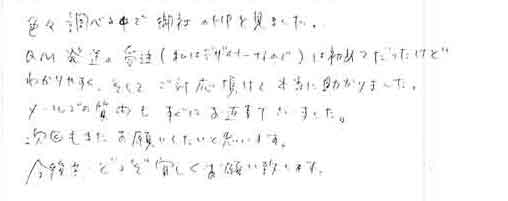 色々調べる中で御社のHPを見ました。
DM発送の受注(私はデザイナーなので)は初めてだったけど
わかりやすく、そしてご対応頂けて本当に助かりました。
メールでの質問もすぐにお返事下さいました。
次回もまたお願いしたいと思います。
今後共、どうぞ宜しくお願い致します。